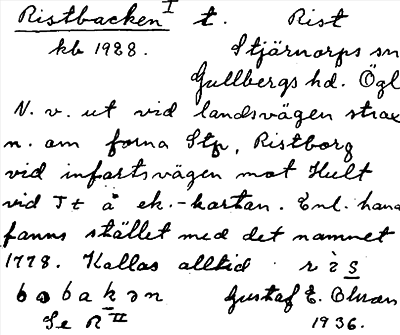 Ristbacken I t. Rist
kb 1928. Stjärnorps sn
Gullbergs hd. Ögl
N. v. ut vid landsvägen strax
n. om forna Stp, Ristborg
vid infartsvägen mot Hult
vid Tt å ek.-kartan. Enl. hand
fanns stället med det namnet
1778. Kallas alltid r ì s
b a b a k ə n Gustaf E. Olsson
Se R II 1936.